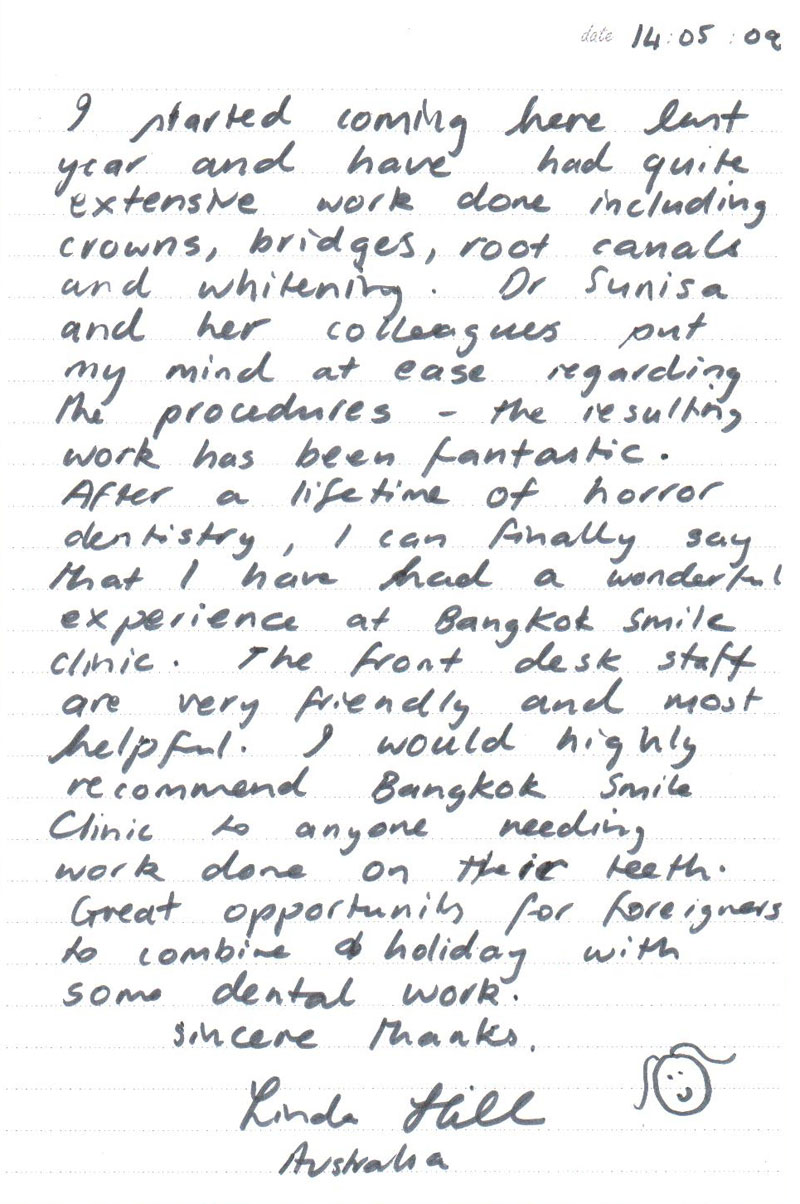 date 14:05:09
I started coming here last
year and have had quite
extensive work done including
crowns, bridges, root canals
and whitening. Dr Sunisa
and her colleagues put
my mind at ease regarding
the procedures - the resulting
work has been fantastic.
After a lifetime of horror
dentistry, I can finally say
that I have had a wonderful
experience at Bangkok Smile
clinic. The front desk staff
are very friendly and most
helpful. I would highly
recommend Bangkok Smile
Clinic to anyone needing
work done on their teeth.
Great opportunity for foreigners
to combine a holiday with
some dental work.
Sincere thanks.
Linda Hill
Australia